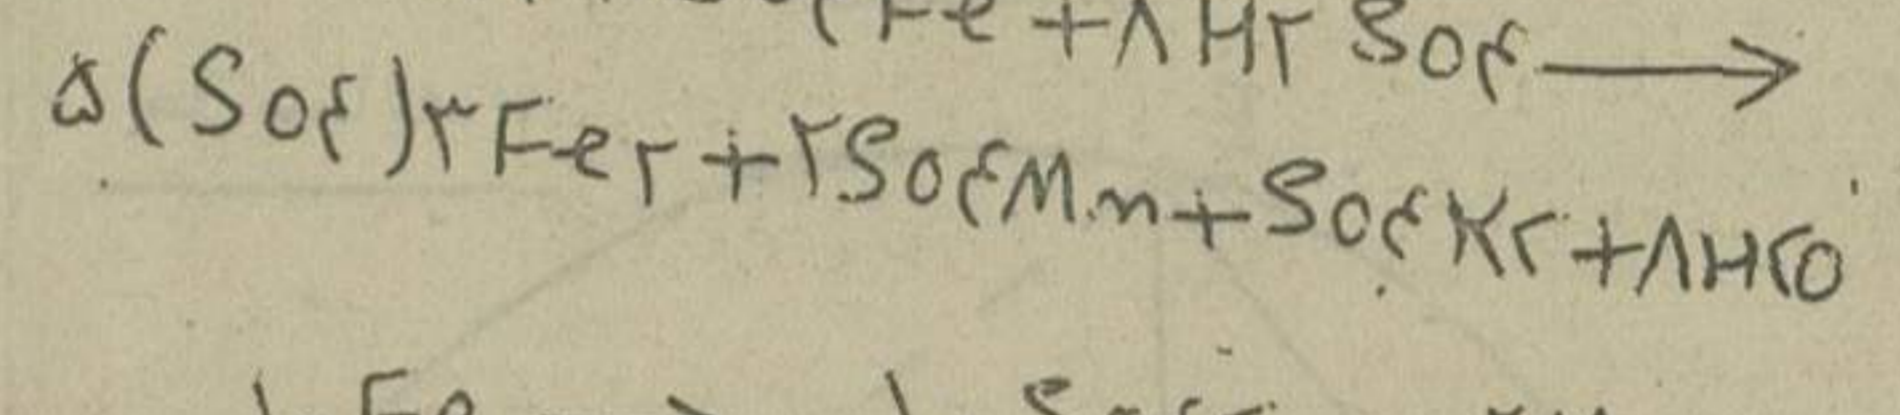 Fe + ۸ H۲ SO۴ ⟶
۵(SO۴)۳ Fe۲ + ۲SO۴Mn + SO۴K۲ + ۸H۲O